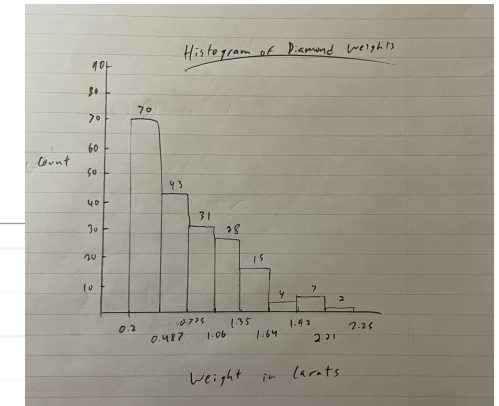 Histogram of Diamond Weights
90
80
70
60
50
40
30
20
10
Count
70
43
31
28
15
4
7
2
0.2
0.487
0.775
1.06
1.35
1.64
1.92
2.21
Weight in Carats